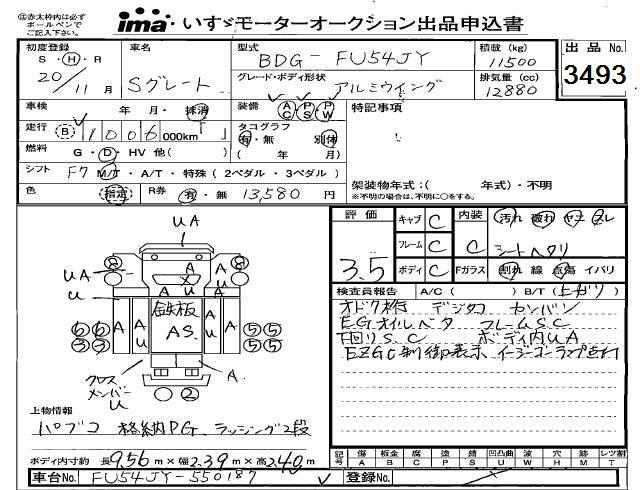 ◎赤太枠内は必ず ボールペンで ご記入下さい。
ima いすゞモーターオークション出品申込書
初度登録 車名 型式 積載 (kg) 出品 No.
S・H・R BDG-FU54JY 11500
20/11月 Sグレート グレード・ボディ形状 アルミウイング 排気量 (cc) 12880 3493
車検 年 月・抹消 装備 AC PS PW 特記事項
走行 (B) 1006 000km タコグラフ 有・無 別体
燃料 G・D・HV 他( ) ( 年 月)
シフト F7 M/T・A/T・特殊 (2ペダル・3ペダル) 架装物年式:( 年式)・不明
色 指定 R券 有・無 13,580 円 ※不明の場合は、不明に○をする。
評価 キャブ C 内装 汚れ 破れ ヤケ ズレ
フレーム C C シートヘタリ
3.5 ボディ C Fガラス 割れ 線 点傷 イバリ
検査員報告 A/C( ) B/T(上がり)
オドク格 デジタコ カンバン
EGオイルベタ フレームSC
下回リS.C ボディ内UA
EZGC制御表示 イージーゴーランプ点灯
UA
UA
U
A U A U
鉄板
AS.
A A A A
⑥⑥ ⑤⑤
③③ ⑤⑤
クロスメンバーU
A.
②
上物情報
パブコ 格納PG、ラッシング2段
ボディ内寸約 長9.56m×幅2.39m×高2.40m
記号 傷 板金 腐 塗 錆 凹凸曲 波 穴 無 レツ割
A W C P S U W H M T
車台No. FU54JY-550187 登録No.